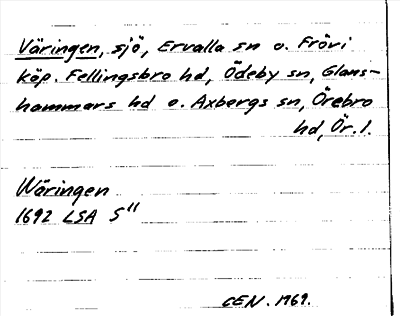 Väringen, sjö, Ervalla sn o. Frövi
köp. Fellingsbro hd, Ödeby sn, Glans-
hammars hd o. Axbergs sn, Örebro
hd, Ör. l.
Wäringen
1692 LSA S11
CEN. 1969.